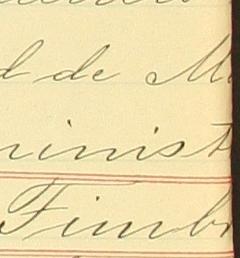 d de M
inist
Fimb